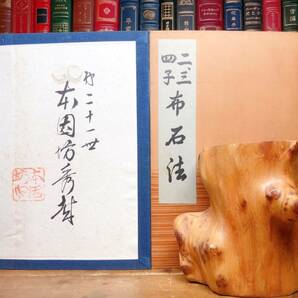 二、三
四子
布石法
第二十一世
本因坊秀哉